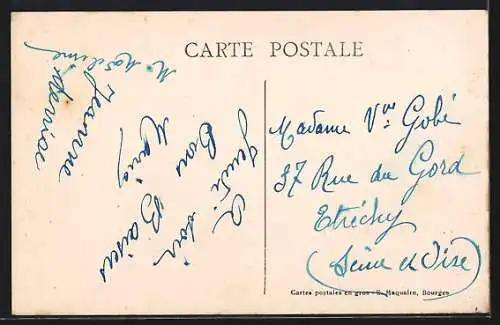 CARTE POSTALE
Jeudi soir
Bons Baisers
Maria
Jeanne
Madame Vve Gobé
37 Rue du Gord
Etréchy
(Seine et Oise)
Cartes postales en gros - E. Maquaire, Bourges